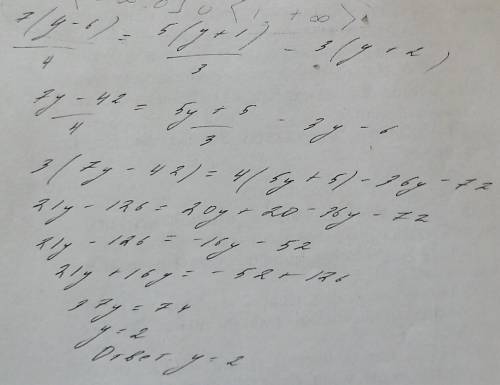 7(y-6)/4 = 5(y+1)/3 - 3(y+2)
7y-42/4 = 5y+5/3 - 3y-6
3(7y-42) = 4(5y+5)-36y-72
21y-126 = 20y+20-36y-72
21y-126 = -16y-52
21y+16y = -52+126
37y = 74
y = 2
Ответ. y = 2